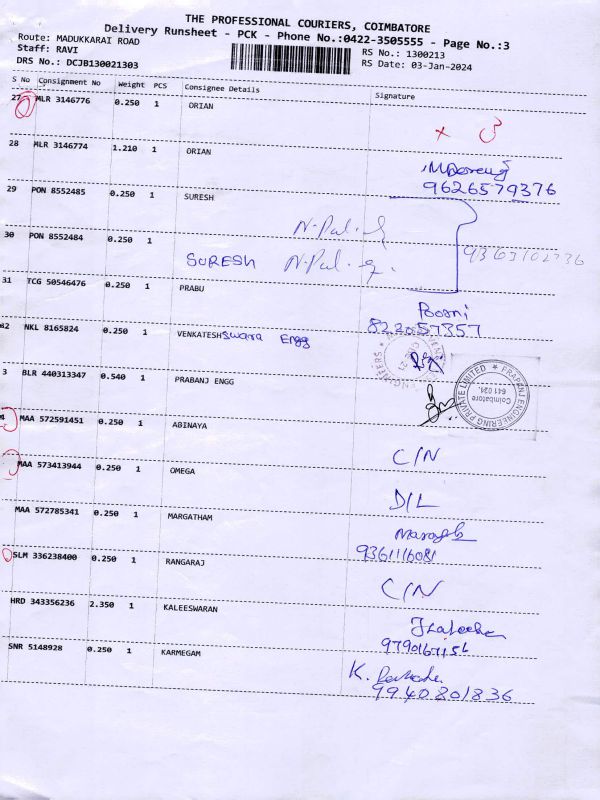 THE PROFESSIONAL COURIERS, COIMBATORE
Delivery Runsheet - PCK - Phone No.:0422-3505555 - Page No.:3
Route: MADUKKARAI ROAD
Staff: RAVI
DRS No.: DCJB130021303
RS No.: 1300213
RS Date: 03-Jan-2024
S No Consignment No Weight PCS Consignee Details Signature
27 MLR 3146776 0.250 1 ORIAN
x
28 MLR 3146774 1.210 1 ORIAN
9626579376
29 PON 8552485 0.250 1 SURESH
30 PON 8552484 0.250 1
SURESH
31 TCG 50546476 0.250 1 PRABU
Poorni
822057357
32 NKL 8165824 0.250 1 VENKATESHswara Engg
3 BLR 440313347 0.540 1 PRABANJ ENGG
PRAPANJ ENGINEERING PRIVATE LIMITED
Coimbatore
641 024.
4 MAA 572591451 0.250 1 ABINAYA
C/N
MAA 573413944 0.250 1 OMEGA
D/L
MAA 572785341 0.250 1 MARGATHAM
9361116081
SLM 336238400 0.250 1 RANGARAJ
C/N
HRD 343356236 2.350 1 KALEESWARAN
SNR 5148928 0.250 1 KARMEGAM
9940801836